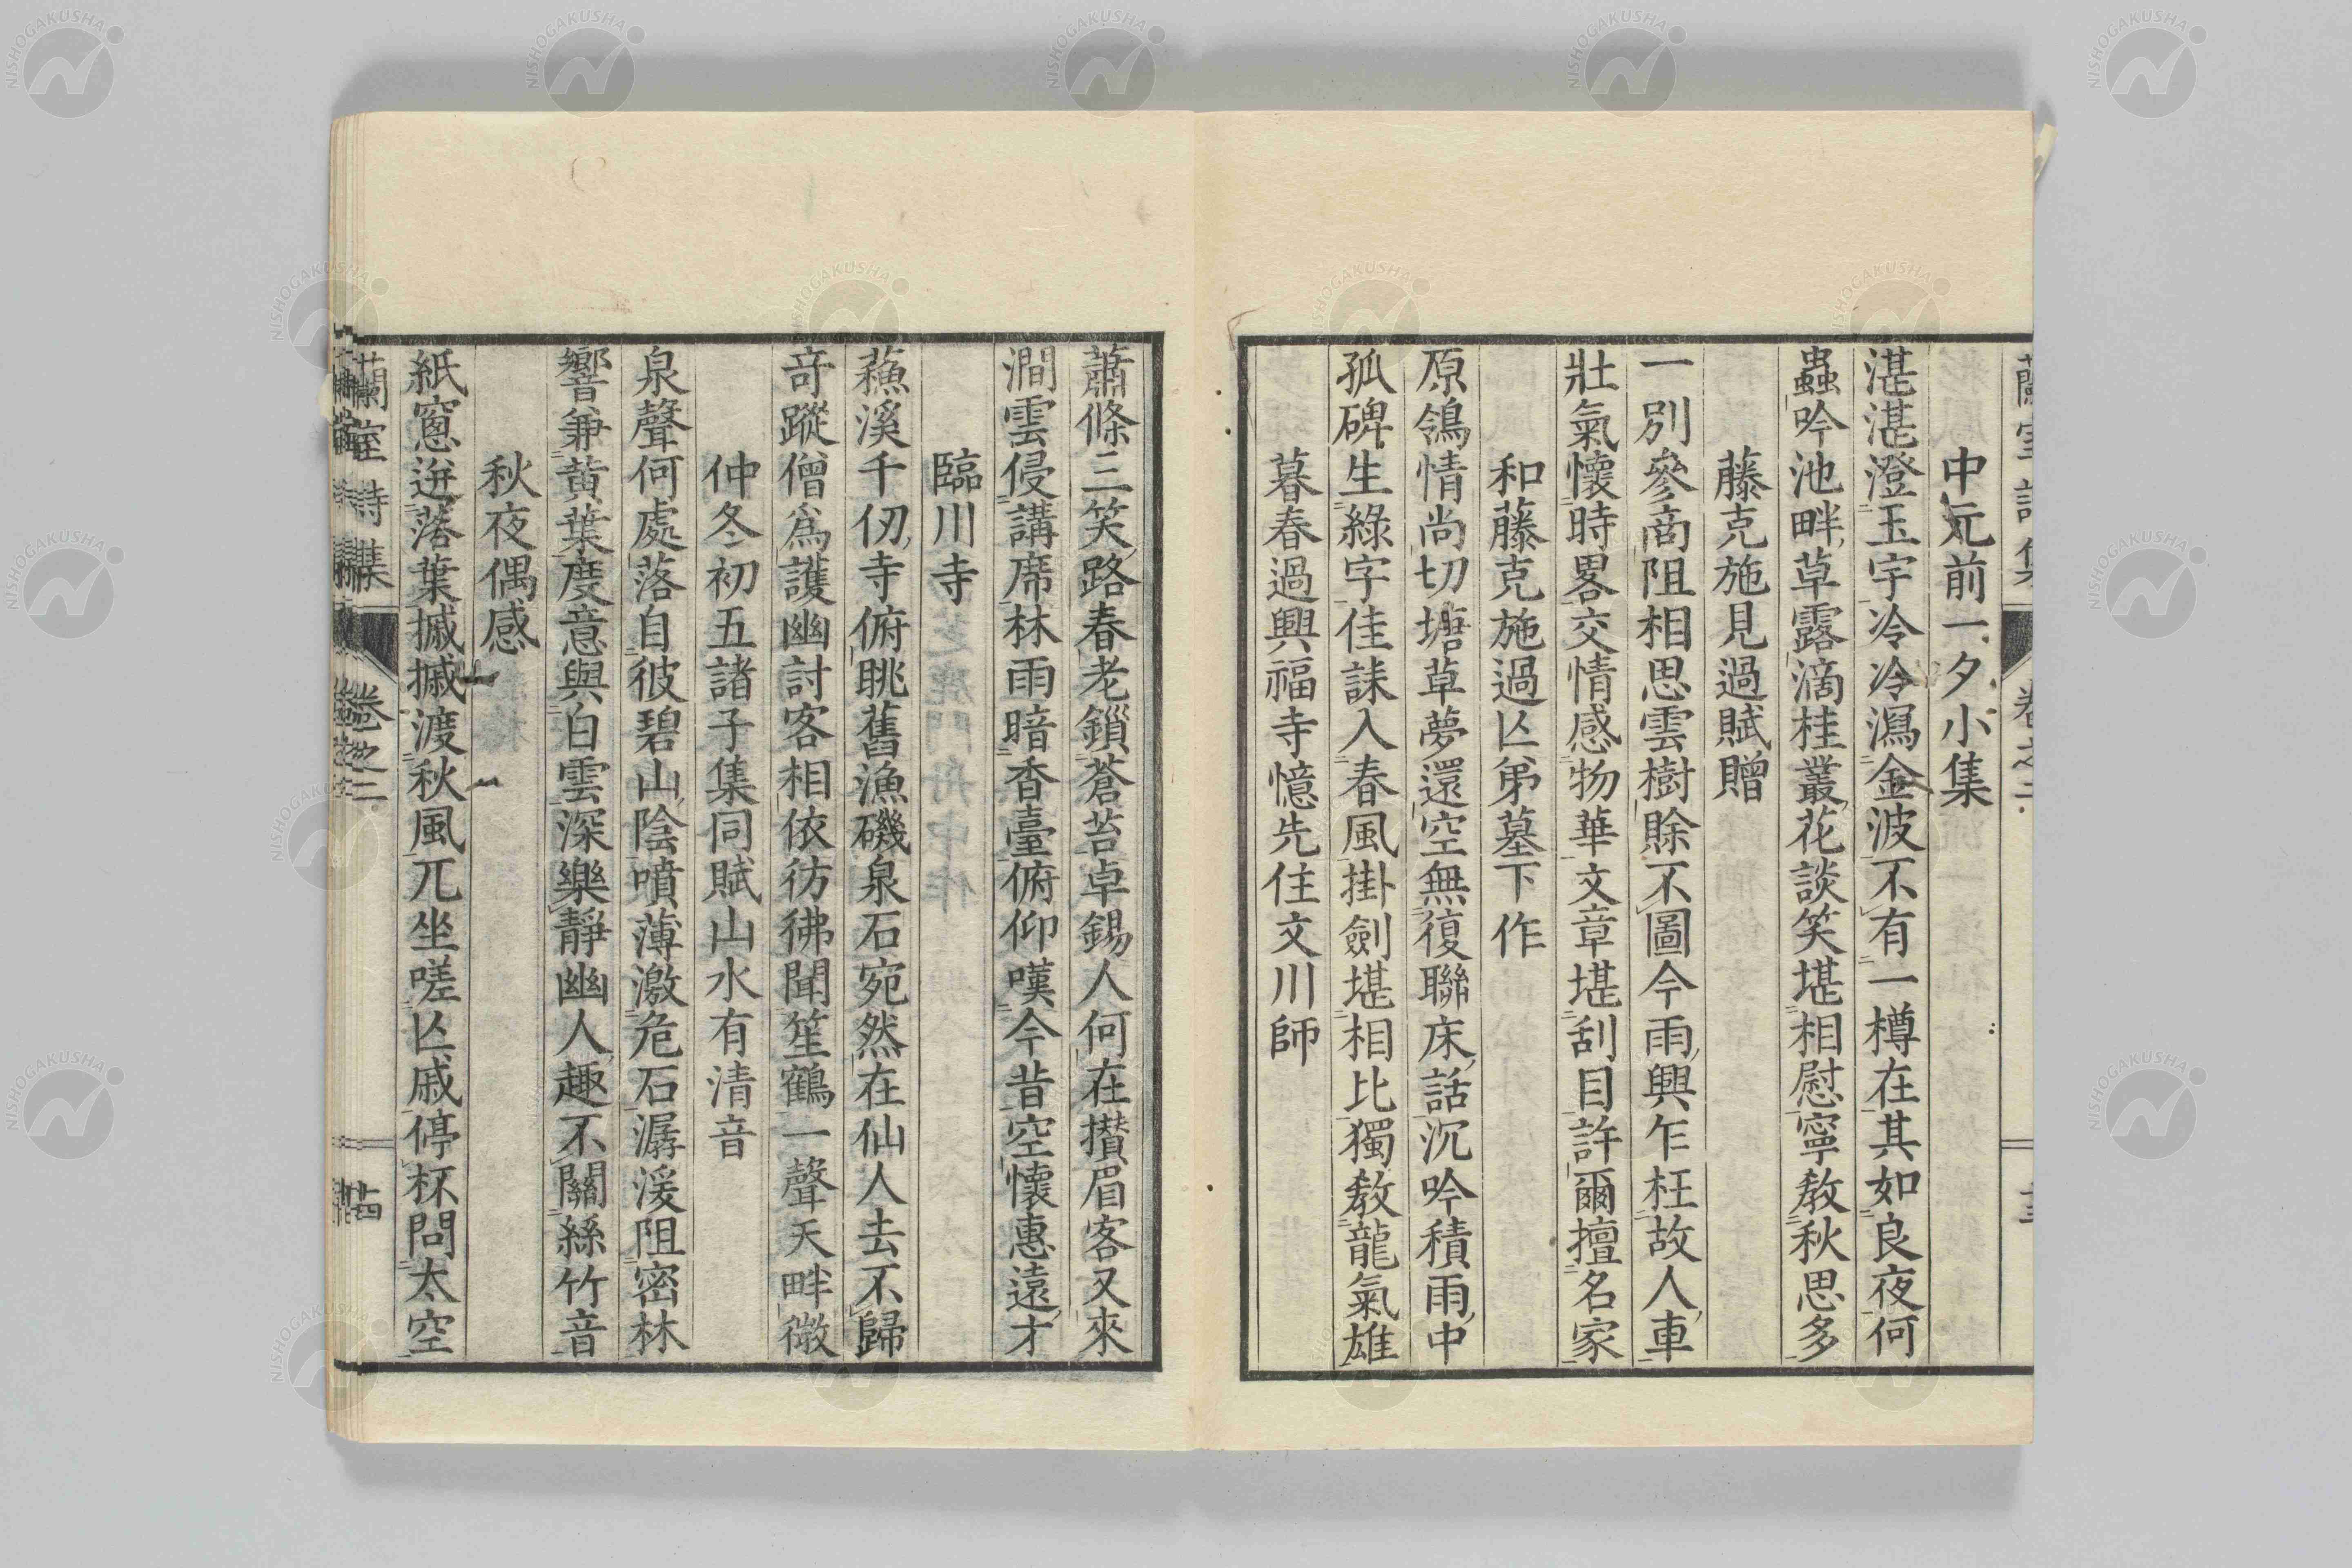 中元前一夕小集
湛湛澄玉宇冷冷瀉金波不有一樽在其如良夜何
蟲吟池畔草露滴桂叢花談笑堪相慰寧教秋思多
藤克施見過賦贈
一別參商阻相思雲樹賒不圖今雨興乍枉故人車
壯氣懷時畧交情感物華文章堪刮目許爾擅名家
和藤克施過亾弟墓下作
原鴒情尚切塘草夢還空無復聯床話沉吟積雨中
孤碑生綠字佳誄入春風掛劍堪相比獨教龍氣雄
暮春過興福寺憶先住文川師
蕭條三笑路春老鎖蒼苔卓錫人何在攅眉客又來
澗雲侵講席林雨暗香臺俯仰嘆今昔空懷惠遠才
臨川寺
蘓溪千仞寺俯眺舊漁磯泉石宛然在仙人去不歸
竒蹤僧爲護幽討客相依彷彿聞笙鶴一聲天畔微
仲冬初五諸子集同賦山水有清音
泉聲何處落自彼碧山陰噴薄激危石潺湲阻密林
響兼黄葉度意與白雲深樂靜幽人趣不關絲竹音
秋夜偶感
紙窓迸落葉摵摵渡秋風兀坐嗟亾戚停杯問太空
蘭室詩集 卷之二 十四
NISHOGAKUSHA